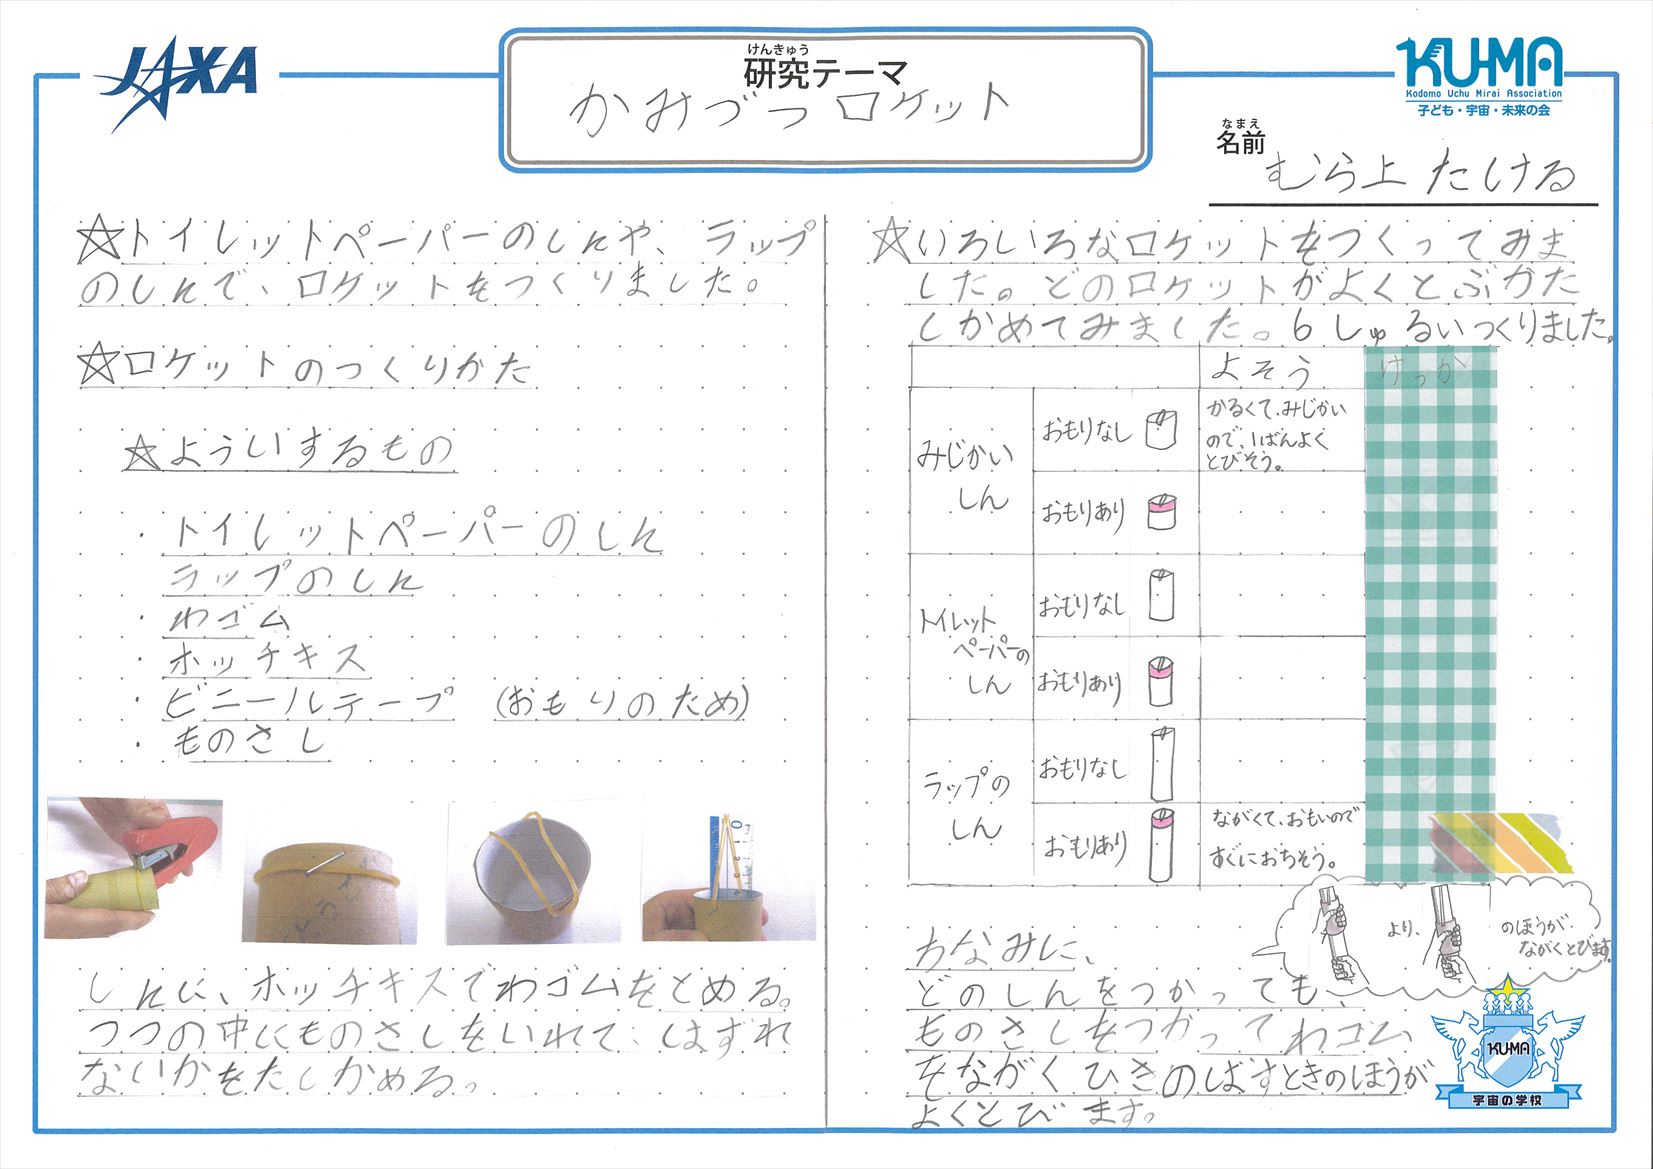 JAXA
けんきゅう
研究テーマ
かみづつロケット
KU-MA
Kodomo Uchu Mirai Association
子ども・宇宙・未来の会
なまえ
名前
むら上 たける
☆トイレットペーパーのしんや、ラップ
のしんで、ロケットをつくりました。
☆ロケットのつくりかた
☆よういするもの
・トイレットペーパーのしん
ラップのしん
・わゴム
・ホッチキス
・ビニールテープ (おもりのため)
・ものさし
0
1
2
3
しんに、ホッチキスでわゴムをとめる。
つつの中にものさしをいれて、はずれ
ないかをたしかめる。
☆いろいろなロケットをつくってみま
した。どのロケットがよくとぶかた
しかめてみました。6しゅるいつくりました。
よそう
けっか
みじかい
しん
おもりなし
かるくて、みじかい
ので、1ばんよく
とびそう。
おもりあり
トイレット
ペーパーの
しん
おもりなし
おもりあり
ラップの
しん
おもりなし
おもりあり
ながくて、おもいので
すぐにおちそう。
より、
のほうが
ながくとびます。
ちなみに、
どのしんをつかっても、
ものさしをつかってわゴム
をながくひきのばすときのほうが
よくとびます。
KU-MA
宇宙の学校